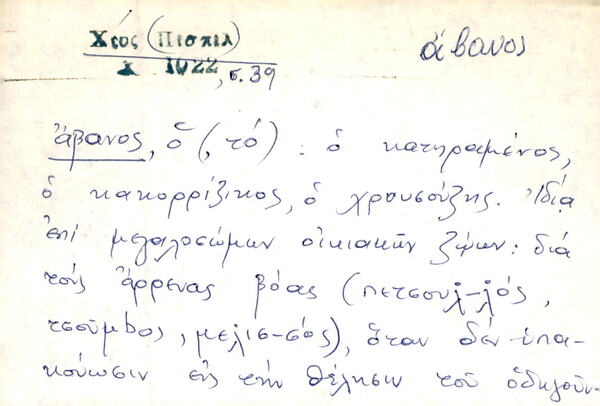 Χίος (Πισπιλ
χ 1922, σ. 39
άβανος
άβανος, ὁ (, τό) : ὁ κατηραμένος,
ὁ κακορρίζικος, ὁ χρουσούζης. Ἰδίᾳ
ἐπί μεγαλοσώμων οἰκιακῶν ζώων: διά
τούς ἄρρενας βόας (πετσουλ-λός,
τσοῦμbος, μελισ-σός), ὅταν δέν ὑπα-
κούωσιν εἰς τήν θέλησιν τοῦ ὁδηγοῦν-